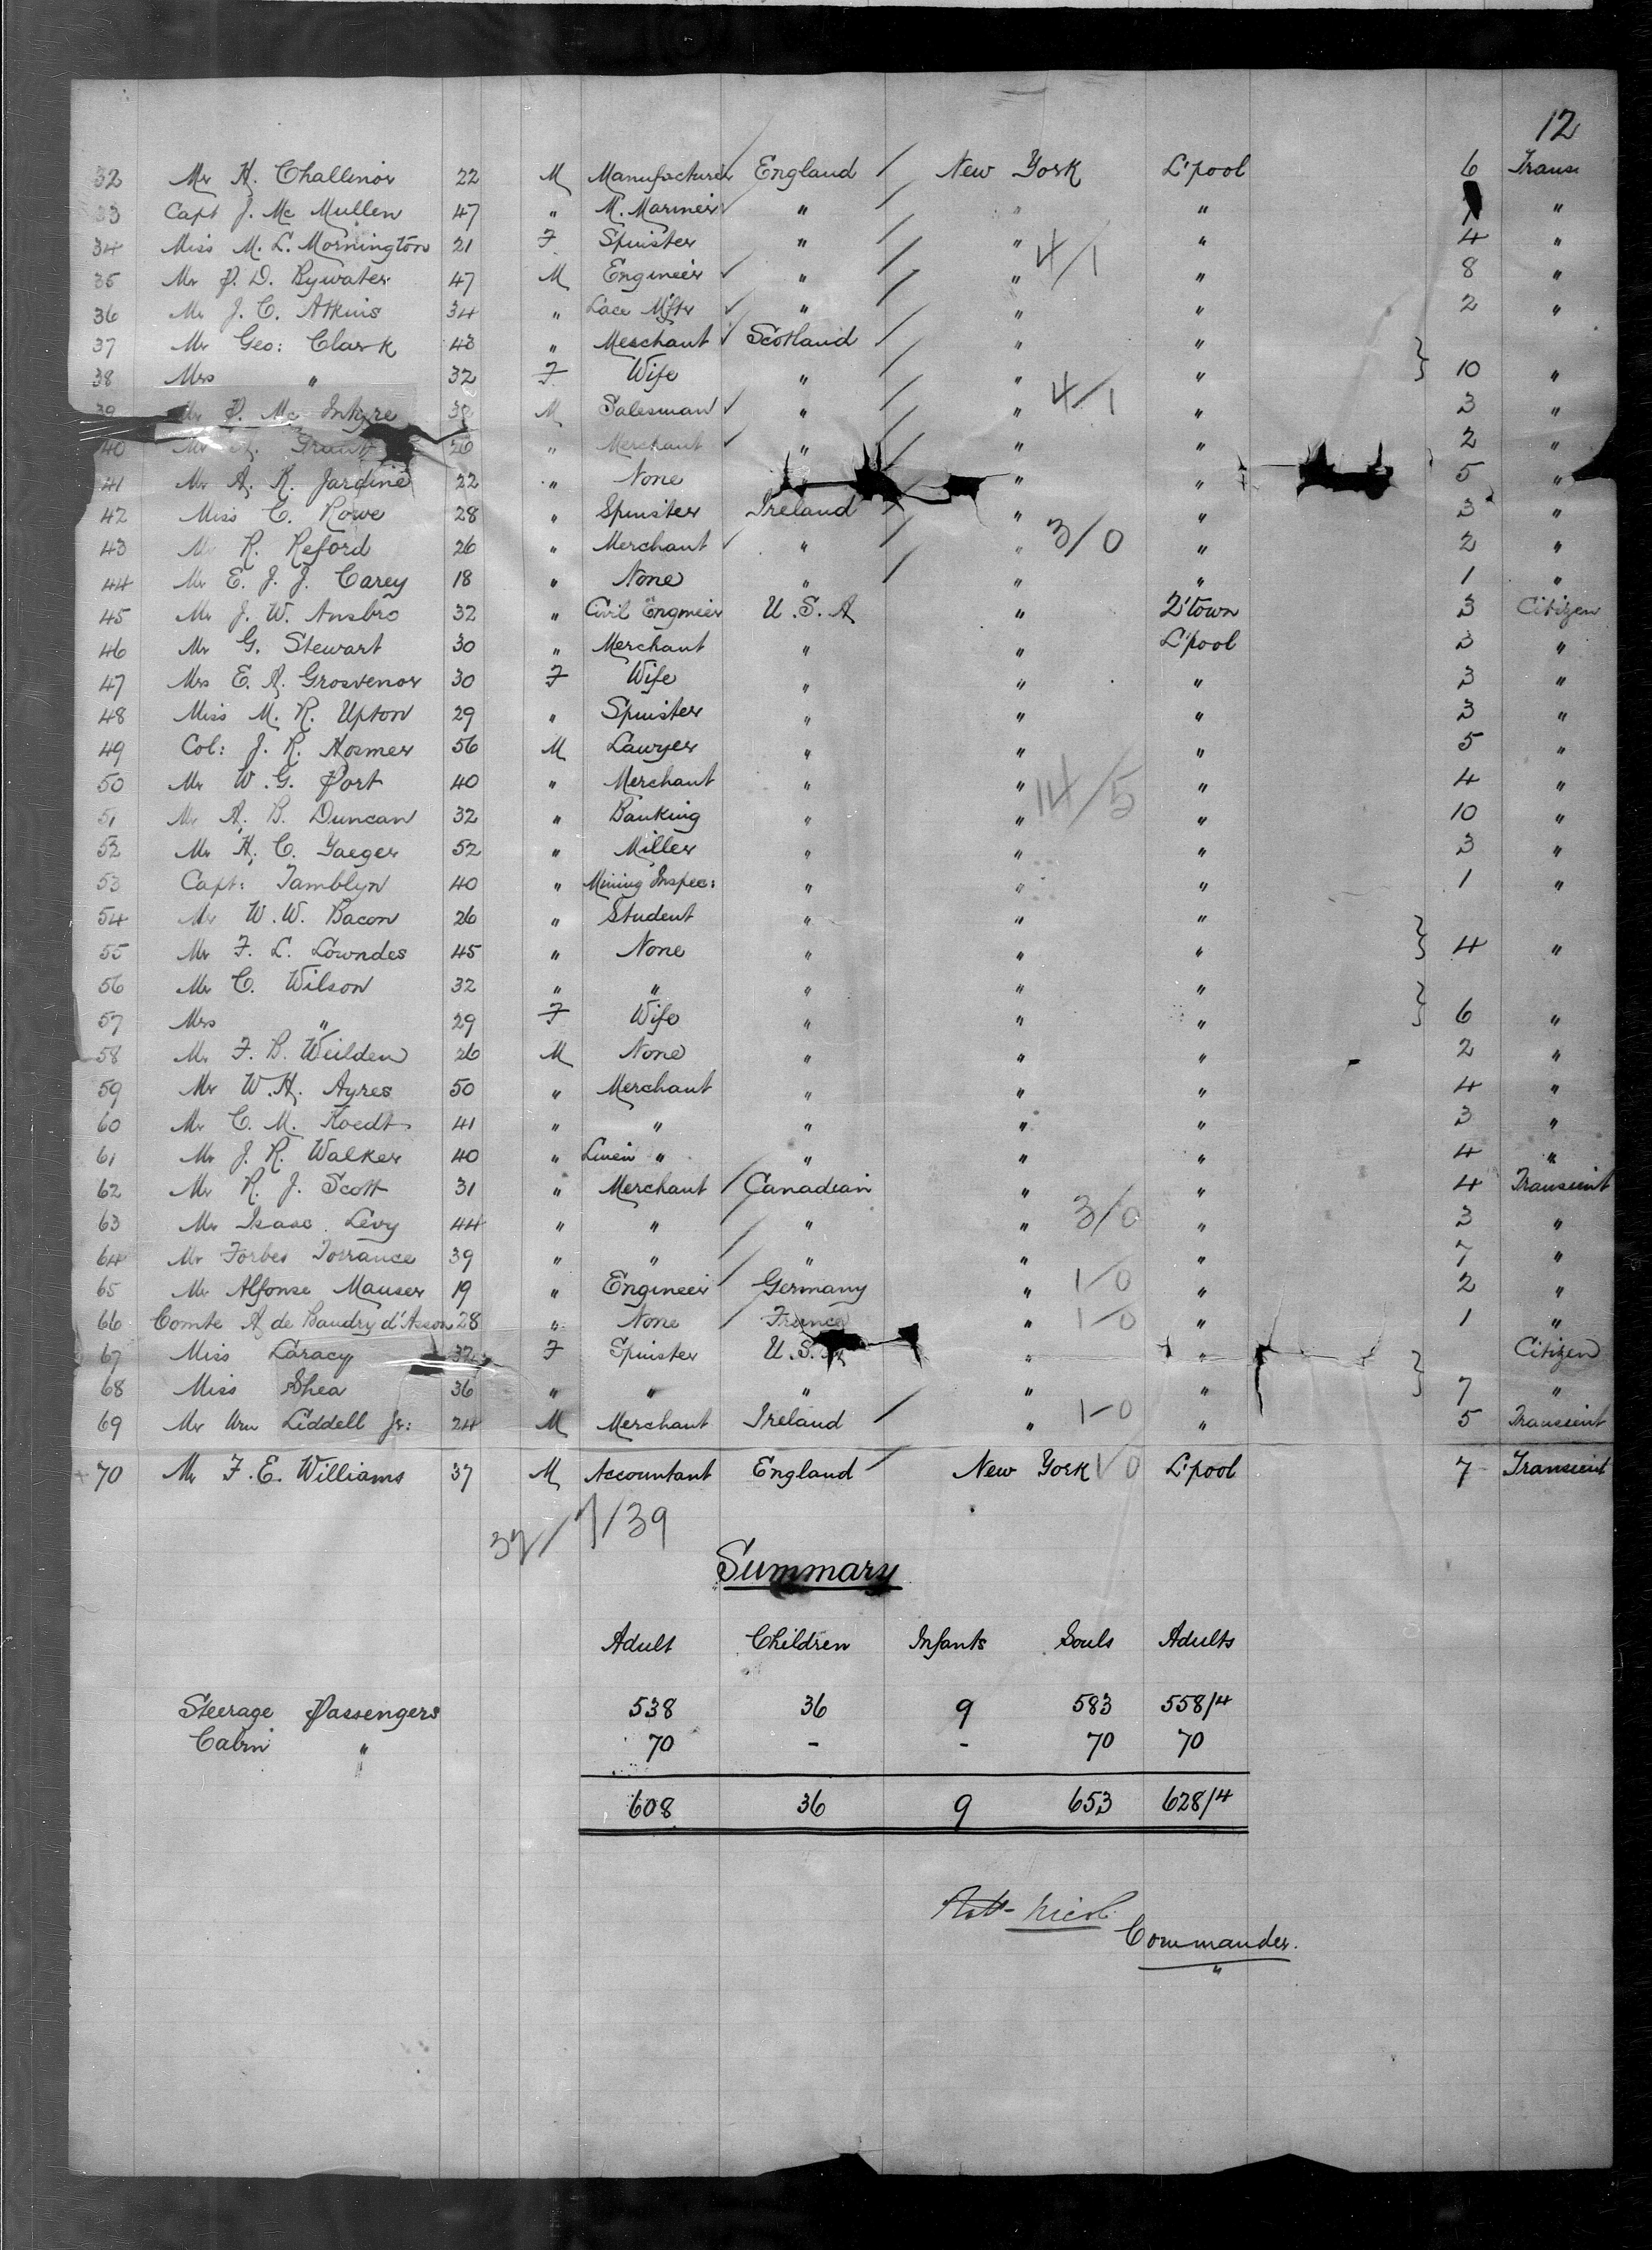 12
32 Mr H. Challinor 22 M Manufacturer England New York L'pool 6 Trans
33 Capt J. Mc Mullen 47 " M. Mariner " " " "
34 Miss M. L. Mornington 21 F Spinster " " " 4 "
4/1
35 Mr P. D. Bywater 47 M Engineer " " " 8 "
36 Mr J. C. Atkins 34 " Lace Mftr " " " 2 "
37 Mr Geo: Clark 43 " Merchant Scotland " "
38 Mrs " 32 F Wife " " " 10 "
4/1
39 Mr P. Mc Intyre M Salesman " " " 3 "
40 Mr Grant 26 " Merchant " " " 2 "
41 Mr A. R. Jardine 22 " None " " 5 "
42 Miss C. Rowe 28 " Spinster Ireland " " 3 "
43 Mr R. Reford 26 " Merchant " " 3/0 " 2 "
44 Mr E. J. J. Carey 18 " None " " " 1 "
45 Mr J. W. Ansbro 32 " Civil Engineer U.S.A " Q'town 3 Citizen
46 Mr G. Stewart 30 " Merchant " " L'pool 3 "
47 Mrs E. A. Grosvenor 30 F Wife " " " 3 "
48 Miss M. R. Upton 29 " Spinster " " " 3 "
49 Col: J. R. Hosmer 56 M Lawyer " " " 5 "
50 Mr W. G. Port 40 " Merchant " " " 4 "
14/5
51 Mr A. B. Duncan 32 " Banking " " " 10 "
52 Mr H. C. Yaeger 52 " Miller " " " 3 "
53 Capt: Tamblyn 40 " Mining Inspec: " " " 1 "
54 Mr W. W. Bacon 26 " Student " " "
55 Mr F. L. Lowndes 45 " None " " " 4 "
56 Mr C. Wilson 32 " " " " "
57 Mrs " 29 F Wife " " " 6 "
58 Mr F. B. Weilden 26 M None " " " 2 "
59 Mr W. H. Ayres 50 " Merchant " " " 4 "
60 Mr C. M. Koedt 41 " " " " " 3 "
61 Mr J. R. Walker 40 " Linen " " " " 4 "
62 Mr R. J. Scott 31 " Merchant Canadian " " 4 Transient
63 Mr Isaac Levy 44 " " " " 3/0 " 3 "
64 Mr Forbes Torrance 39 " " " " " 7 "
65 Mr Alfonse Mauser 19 " Engineer Germany " 1/0 " 2 "
66 Comte A de Baudry d'Asson 28 " None France " 1/0 " 1 "
67 Miss Laracy 32 F Spinster U.S.A " " Citizen
68 Miss Shea 36 " " " " " 7 "
69 Mr Wm Liddell Jr: 24 M Merchant Ireland " 1-0 " 5 Transient
70 Mr F. E. Williams 37 M Accountant England New York 1/0 L'pool 7 Transient
32/ 7/39
Summary
Adult Children Infants Souls Adults
Steerage Passengers 538 36 9 583 558/4
Cabin " 70 - - 70 70
608 36 9 653 628/4
Commander.